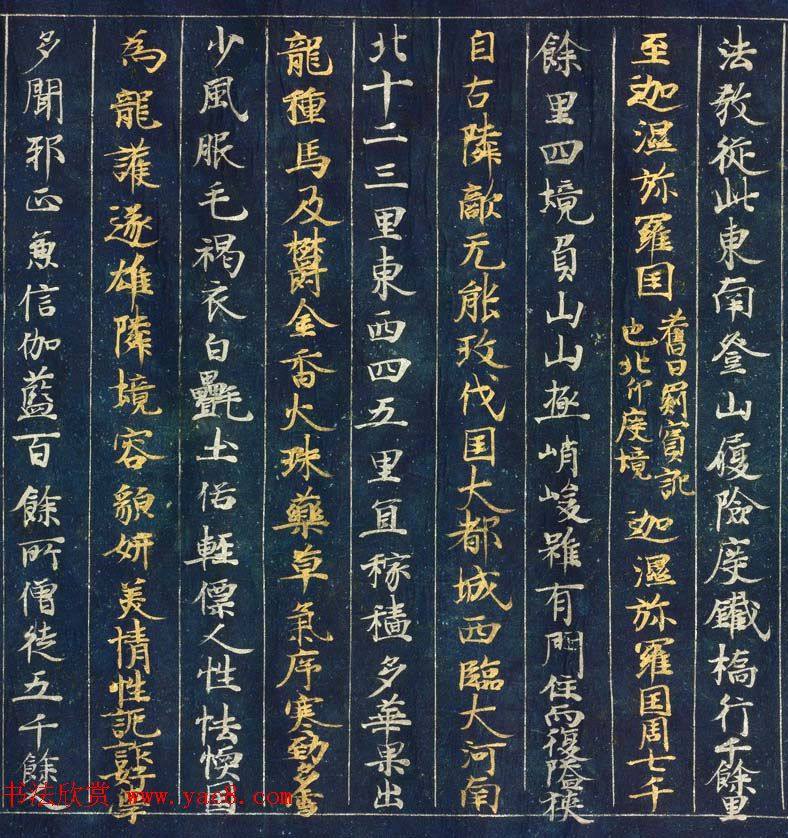 法教從此東南登山履險度鐵橋行千餘里
至迦濕弥羅国舊曰罽賓訛也北印度境迦濕弥羅国周七千
餘里四境負山山極峭峻雖有門住而復隘狹
自古隣敵无能攻伐国大都城西臨大河南
北十二三里東西四五里宜稼穡多華果出
龍種馬及欝金香火珠藥草氣序寒勁多雪
少風服毛褐衣白氎土俗輕僄人性怯愞国
為龍護遂雄隣境容貌妍美情性詭詐好學
多聞邪正兼信伽藍百餘所僧徒五千餘人
书法欣赏 www.yac8.com